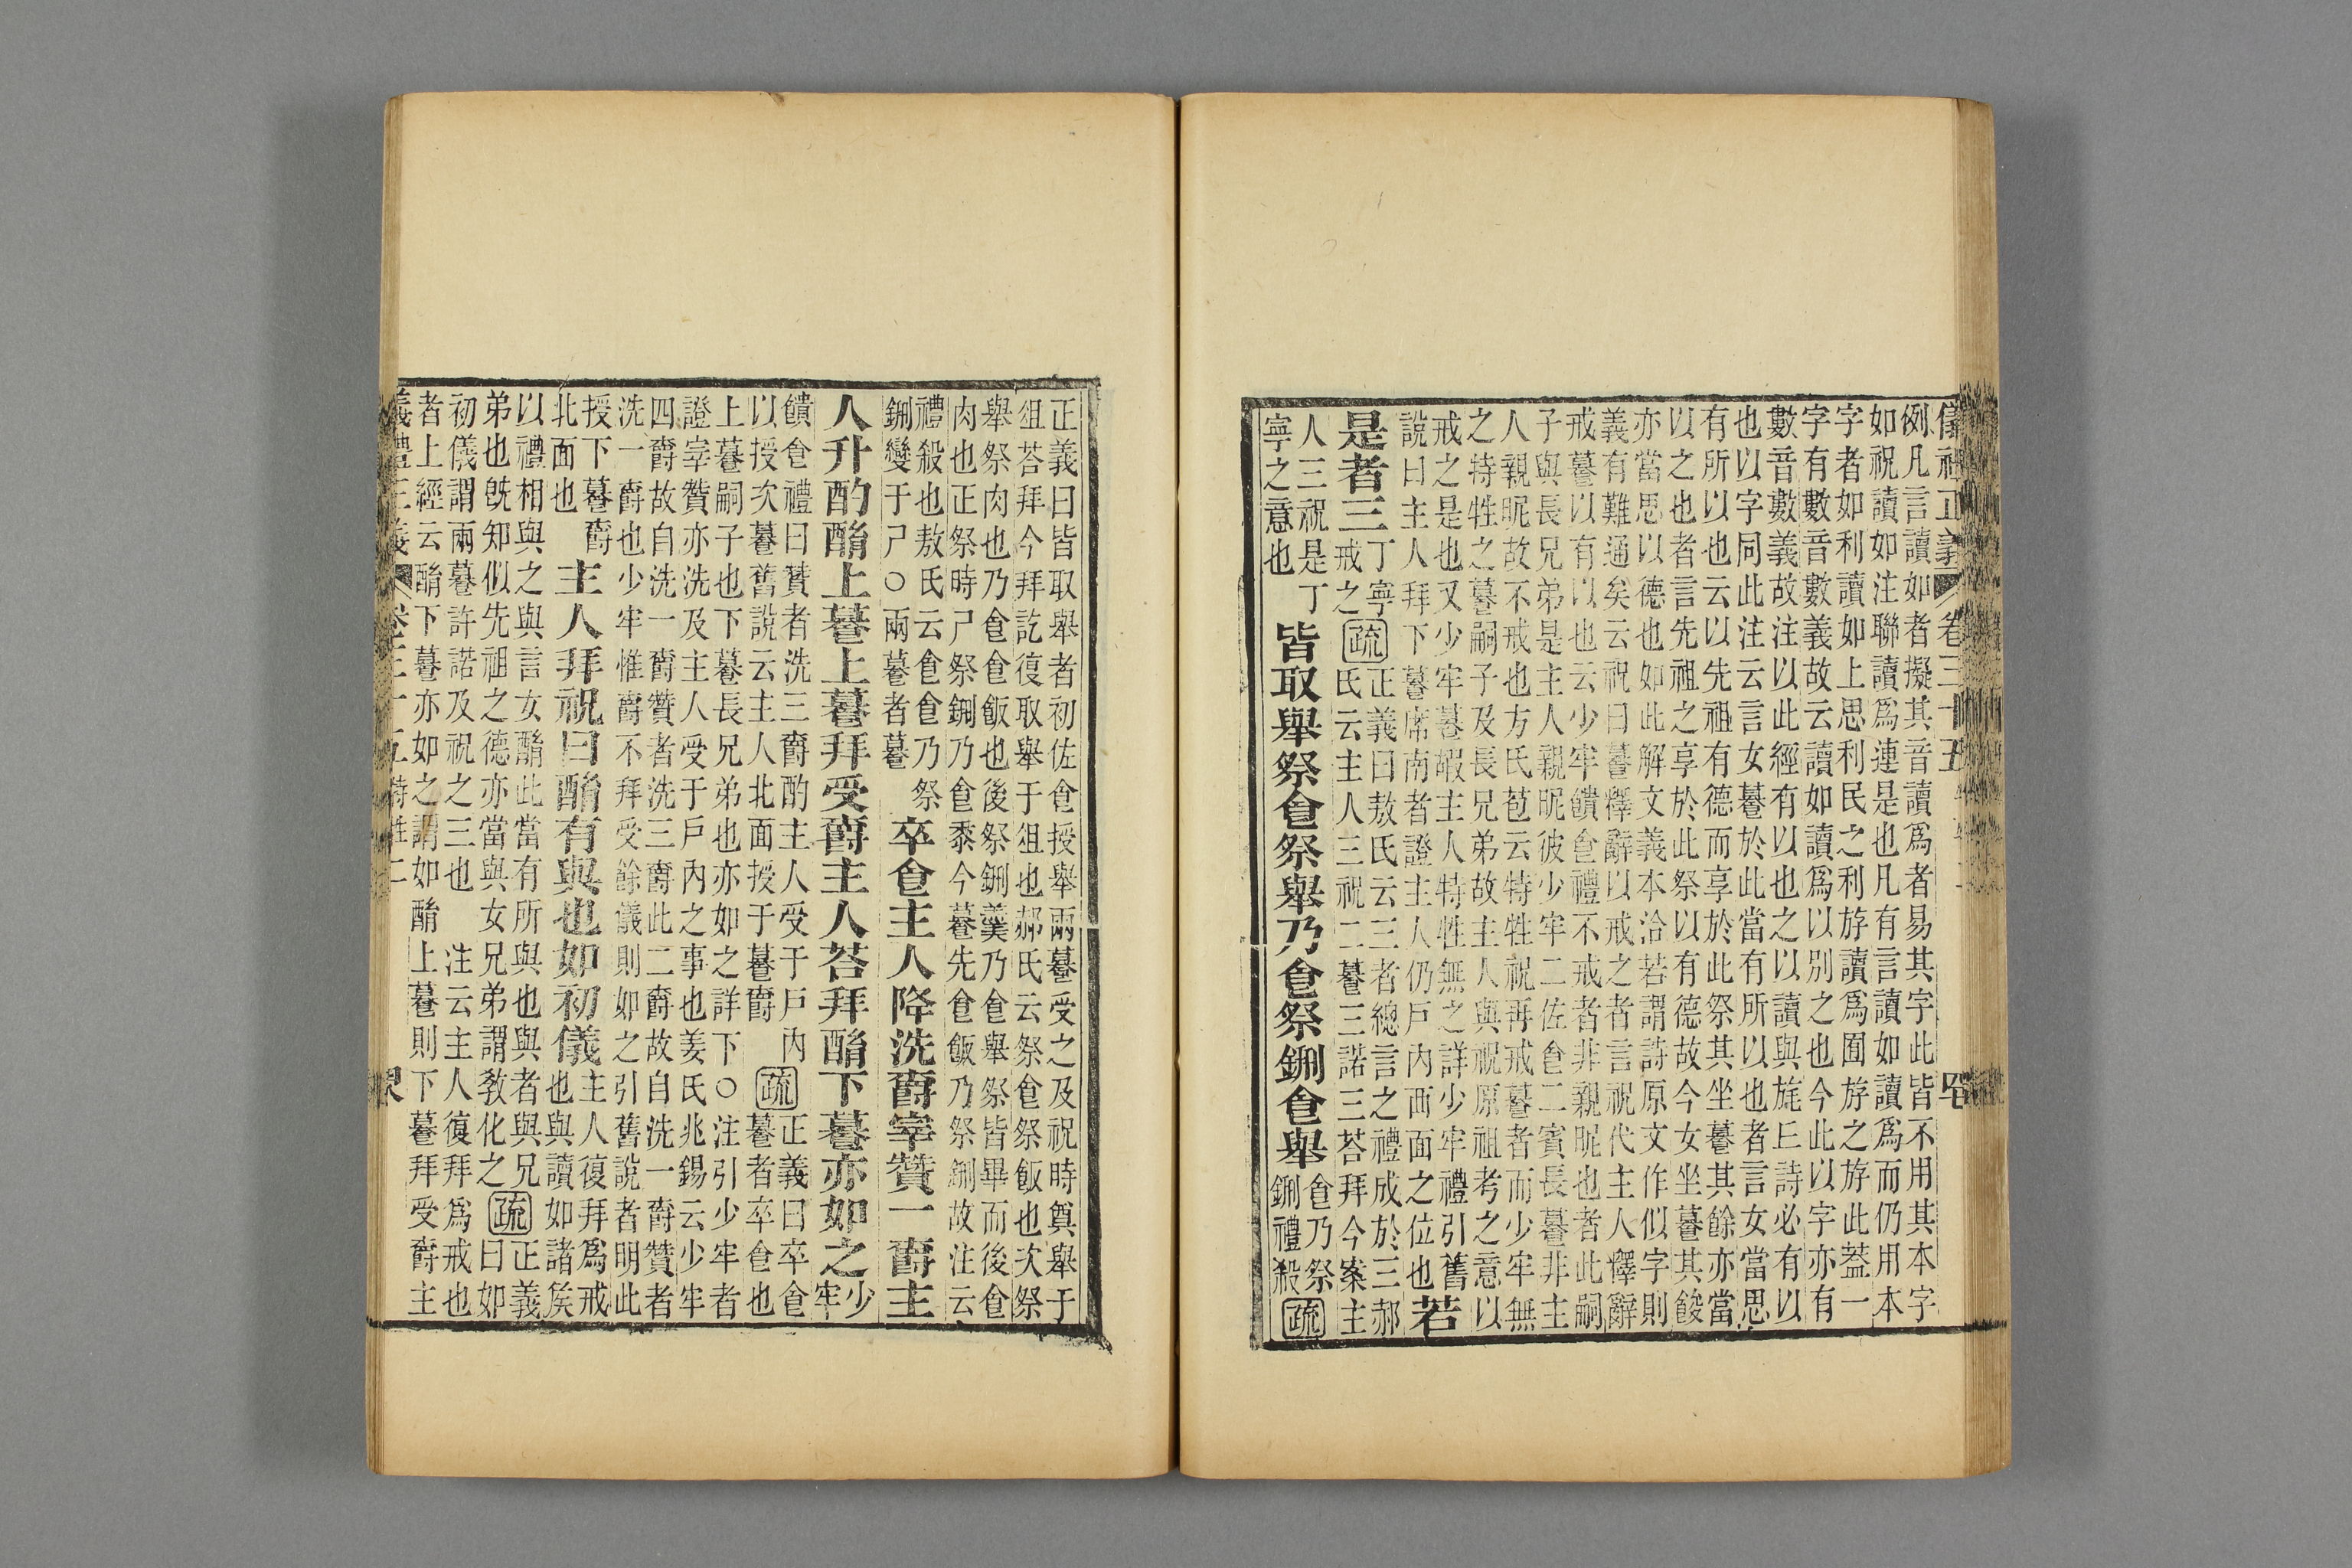 儀禮正義 卷三十五
例凡言讀如者擬其音讀爲者易其字此皆不用其本字
如祝讀如注聯讀爲連是也凡有言讀如讀爲而仍用本
字者如利讀如上思利民之利斿讀爲囿斿之斿此葢一
字有數音數義故云讀如讀爲以別之也今此以字亦有
數音數義故注以此經有以也之以讀與旄丘詩必有以
也以字同此注云言女䕓於此當有所以也者言女當思
有所以也云以先祖有德而享於此祭其坐䕓其餘亦當
以之也者言先祖之享於此祭以有德故今女坐䕓其餕
亦當思以德也如此解文義本洽若謂詩原文作似字則
義有難通矣云祝曰䕓釋辭以戒之者言祝代主人釋辭
戒䕓以有以也云少牢饋食禮不戒者非親昵也者此嗣
子與長兄弟是主人親昵彼少牢二佐食二賓長䕓非主
人親昵故不戒也方氏苞云特牲祝再戒䕓者而少牢無
之特牲之䕓嗣子及長兄弟故主人與祝原祖考之意以
戒之是也又少牢䕓嘏主人特牲無之詳少牢禮引舊
說曰主人拜下䕓席南者證主人仍戶內西面之位也
若
是者三
丁寧
戒之
疏
正義曰敖氏云三者總言之禮成於三郝
氏云主人三祝二䕓三諾三荅拜今案主
人三祝是丁
寧之意也
皆取舉祭食祭舉乃食祭鉶食舉
食乃祭
鉶禮殺
疏
正義曰皆取舉者初佐食授舉兩䕓受之及祝時奠舉于
俎荅拜今拜訖復取舉于俎也郝氏云祭食祭飯也次祭
舉祭肉也乃食食飯也後祭鉶羹乃食舉祭皆畢而後食
肉也正祭時尸祭鉶乃食黍今䕓先食飯乃祭鉶故注云
禮殺也敖氏云食食乃祭
鉶變于尸○兩䕓者䕓
卒食主人降洗爵宰贊一爵主
人升酌酳上䕓上䕓拜受爵主人荅拜酳下䕓亦如之
少
牢
饋食禮曰贊者洗三爵酌主人受于戶內
以授次䕓舊說云主人北面授于䕓爵
疏
正義曰卒食
䕓者卒食也
上䕓嗣子也下䕓長兄弟也亦如之詳下○注引少牢者
證宰贊亦洗及主人受于戶內之事也姜氏兆錫云少牢
四爵故自洗一爵贊者洗三爵此二爵故自洗一爵贊者
洗一爵也少牢惟爵不拜受餘儀則如之引舊說者明此
授下䕓爵
北面也
主人拜祝曰酳有與也如初儀
主人復拜爲戒
也與讀如諸矦
以禮相與之與言女酳此當有所與也與者與兄
弟也旣知似先祖之德亦當與女兄弟謂教化之
疏
正義
曰如
初儀謂兩䕓許諾及祝之三也　注云主人復拜爲戒也
者上經云酳下䕓亦如之謂如酳上䕓則下䕓拜受爵主